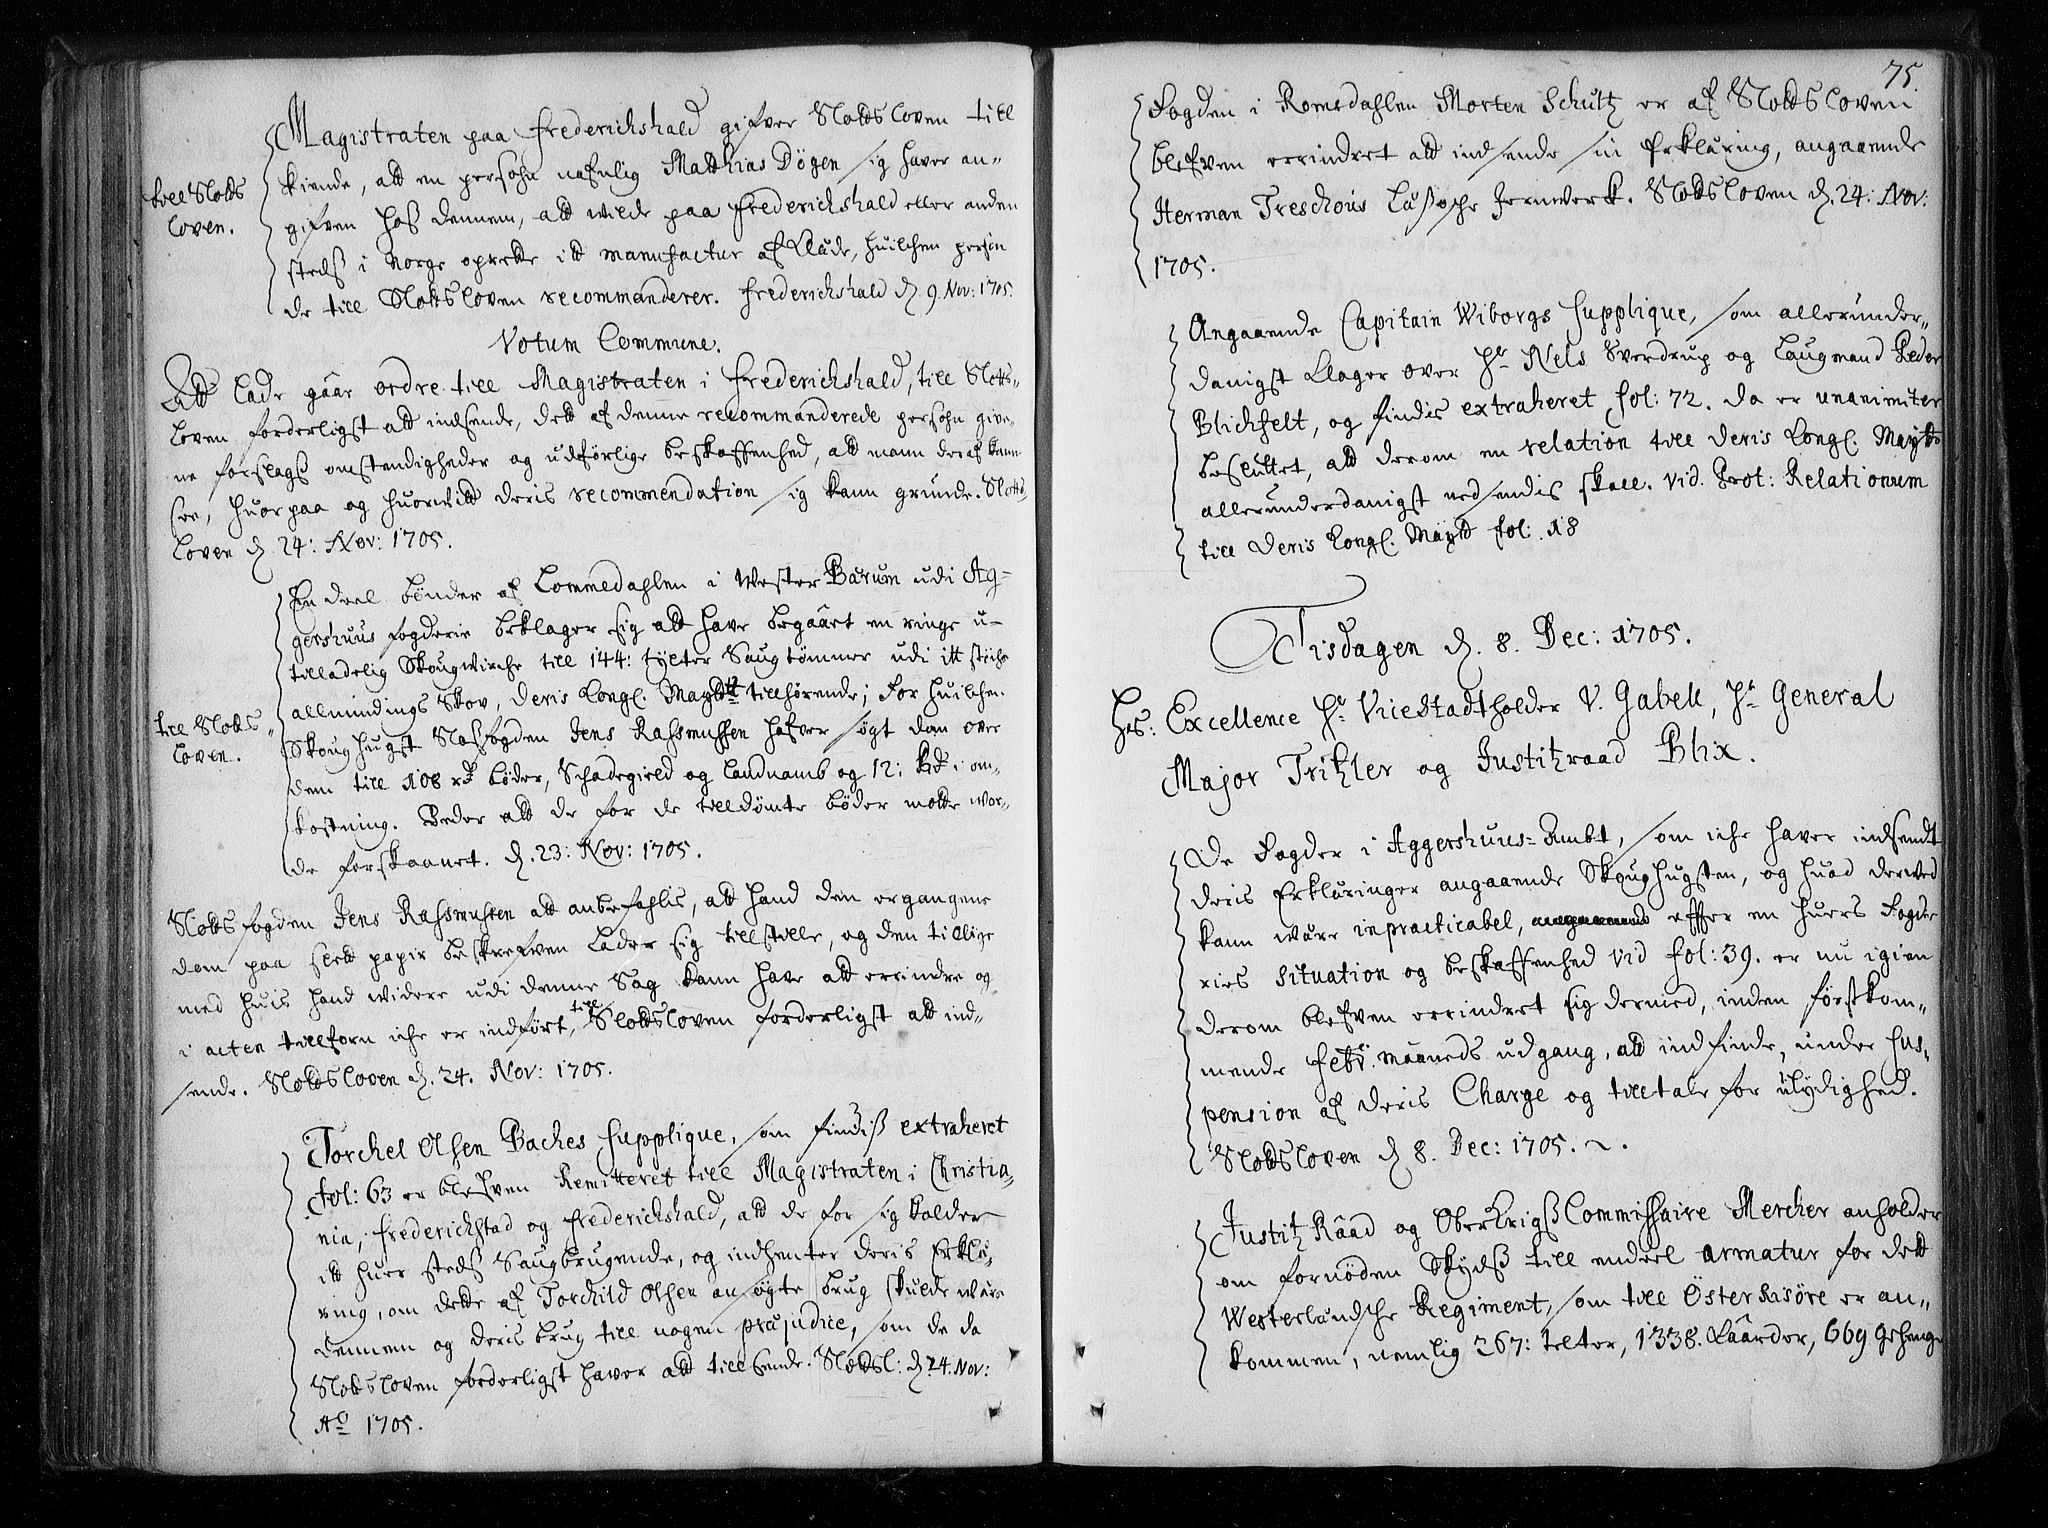 Magistraten paa Frederichshald gifver Slotdsloven till
kiende, att en persohn nafnlig Matthias Dögen sig haver an-
till Slotds
loven.
gifven hoß dennem, att wilde paa Frederichshald eller anden
steds i Norge oprette itt manufactur af Klæde, huilchen persohn
de till Slotdsloven recommanderer. Frederichshald d. 9. Nov: 1705.
Votum Commune.
Att lade gaar ordre till Magistraten i Frederichshald, till Slotts-
loven forderligst att indsende, dett af denne recommanderede persohn give-
ne forslagß omstendigheder og udførlige beskaffenhed, att mann deraf kann
see, huorpaa og huorvitt deris recommendation sig kann grunde. Slotts-
loven d. 24: Nov: 1705.
En deel bönder af Lommedahlen i Wester Bärum udi Ag-
gershuus fogderie beklager sig att have begaaet en ringe u-
tilladelig Skougvirche till 144: tylter Saugtömmer udi itt støche
allmindings Skov, deris Kongl. Maytts tillhørende; for huilchen
till Slotds
loven.
Skoughugst Slotsfogden Jens Rassmussen hafver søgt dom over
dem till 108 rd bøder, Schadegield og landnamb og 12: Rd i om-
kostning. Beder att de for de tilldømte bøder motte wor-
de forskaanet. d. 23: Nov: 1705.
Slotsfogden Jens Rassmussen att anbefahlis, att hand den ergangene
dom paa slett papir beskrefven lader sig tillstille, og den tillige
med huis hand widere udi denne Sag kann have att errindre og
i acten tillforn iche er indført, till Slottsloven forderligst att ind-
sende. Slottsloven d. 24. Nov: 1705.
Torchel Olsen Baches Supplique, som findiß extraheret
fol: 63 er blefven Remitteret till Magistraten i Christia-
nia, Frederichstad og Frederichshald, att de for sig kalder
itt huer steds Saugbrugende, og indhenter deris Erklæ-
ring, om dette af Torchild Olsen ansøgte brug skulde være
dennem og deris brug till nogen præjudice, som de da
Slottsloven forderligst haver att tillsende. Slottsl: d. 24. Nov:
Ao 1705.
75.
Fogden i Romsdahlen Morten Schultz er af Slottsloven
blefven errindret att indsende sin Erklæring, angaaende
Herman Treschous Läßøche Jernwerk. Slottsloven d. 24: Nov:
1705.
Angaaende Capitain Wiborgs Supplique, som allerunder-
danigst klager over Hr Nels Sverdrup og Laugmand Peder
Blichfelt, og findis extraheret fol: 72. da er unanimiter
besluttet, att derom en relation till deris Kongl. Maytt
allerunderdanigst nedsendis skall. vid. Prot: Relationum
till deris Kongl. Maytt fol: 18
Tisdagen d. 8. Dec: 1705.
Hs: Excellence Hr Viicestadtholder V. Gabell, Hr General
Major Tritzler og Justitzraad Blix.
De Fogder i Aggershuus-Ambt, som iche haver indsendt
deris Erklæringer angaaende Skoughugsten, og huad derwed
kann wäre inpracticabel, effter en huers Fogde
ries situation og beskaffenhed vid fol: 39. er nu igien
derom blefven errindret sig dermed, inden førstkom-
mende Febr: maaneds udgang, att indfinde, under Sus-
pension af deris Charge og tilltale for ulydighed.
Slottsloven d 8. Dec: 1705.
Justitz Rååd og OberKrigß Commissaire Mercher anholder
om fornöden Skydß till endeel armatur for dett
Westerlandsche Regiment, som till Öster Risöre er an-
kommen, nemlig 267: telter, 1338. Käärder, 669 gehenge